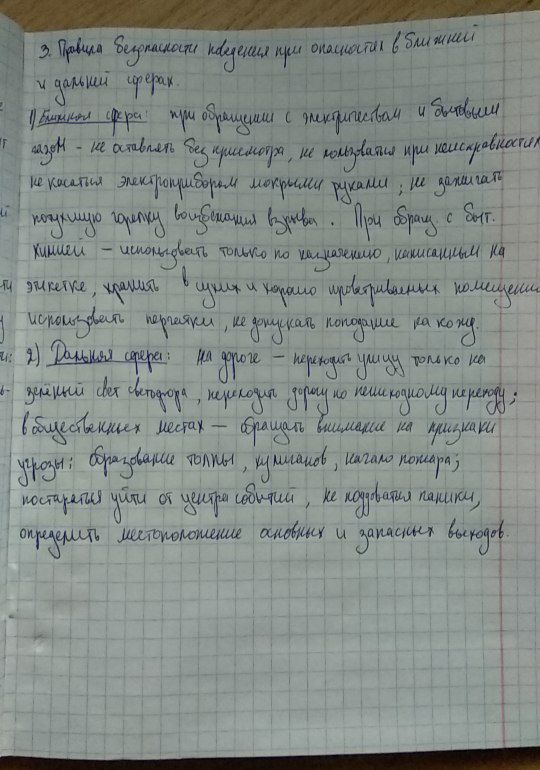 3. Правила безопасности поведения при опасностях в ближней
и дальней сферах.
1) Ближняя сфера: при обращении с электричеством и бытовым
газом - не оставлять без присмотра, не пользоваться при неисправностях
не касаться электроприборам мокрыми руками, не зажигать
потухшую горелку во избежания взрыва. При обращ с быт.
химией - использовать только по назначению, написанным на
этикетке, хранить в сухих и хорошо проветриваемых помещени
использовать перчатки, не допускать попадание на кожу.
2) Дальняя сфера: на дороге - переходить улицу только на
зелёный свет светофора, переходить дорогу по пешеходному переходу;
в общественных местах - обращать внимание на признаки
угрозы: образование толпы, хулиганов, начало пожара;
постараться уйти от центра событий, не поддоваться панике,
определить местоположение основных и запасных выходов.